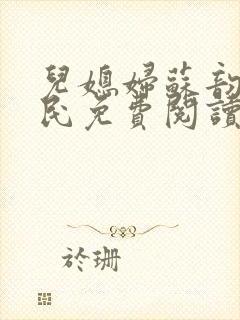 兒媳婦蘇韵
民免費閱讀
於珊